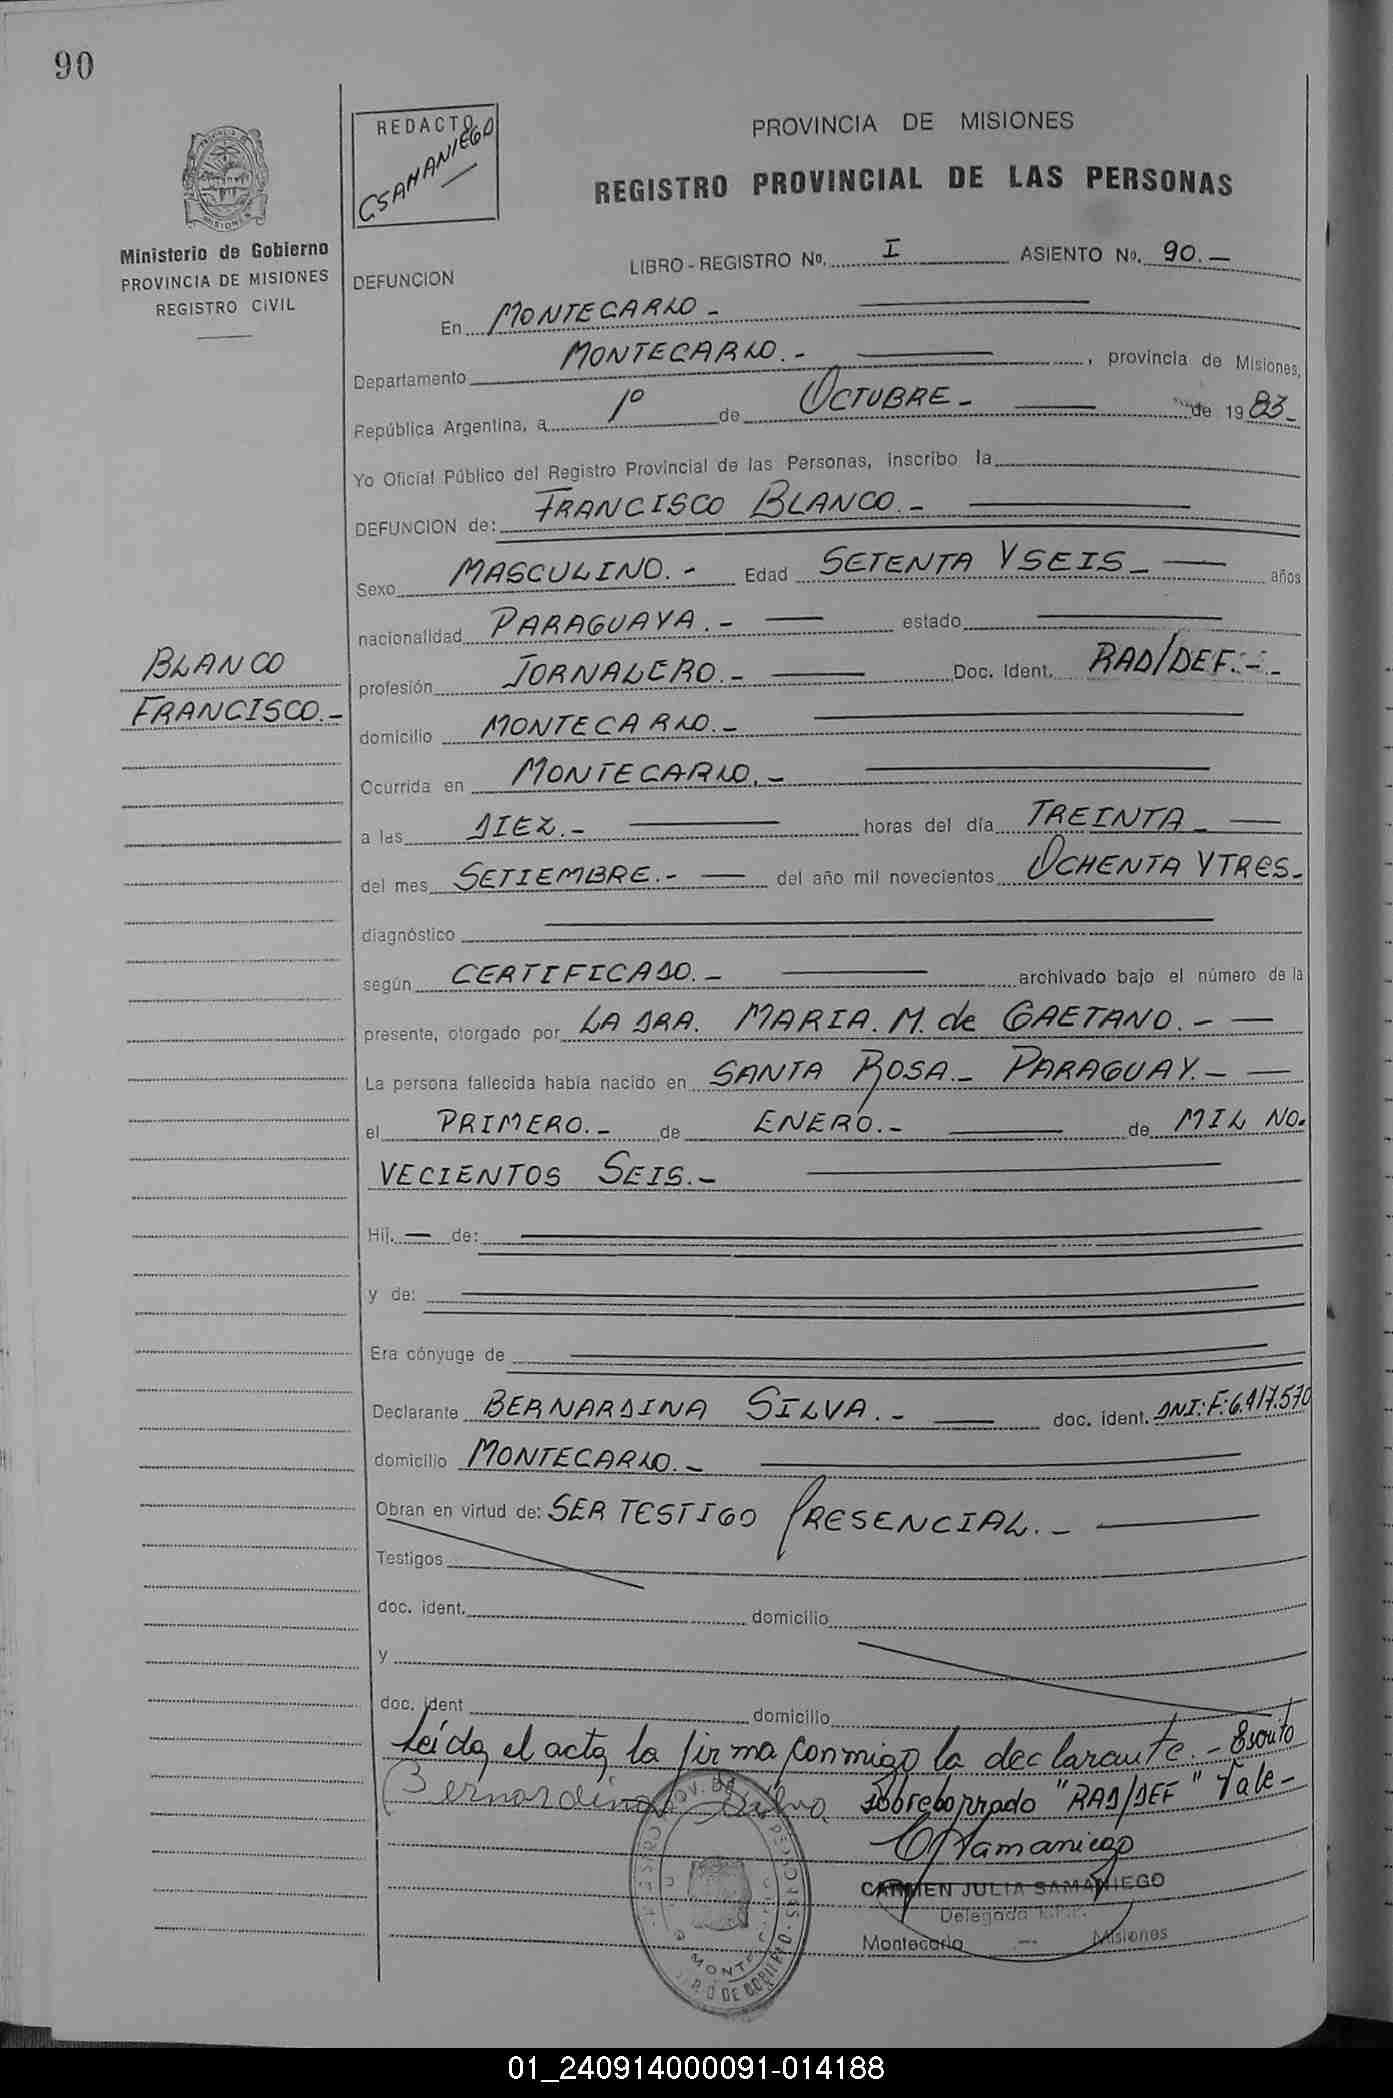 90
REDACTO
CSAMANIEGO
PROVINCIA DE MISIONES
REGISTRO PROVINCIAL DE LAS PERSONAS
Ministerio de Gobierno
PROVINCIA DE MISIONES
REGISTRO CIVIL
LIBRO - REGISTRO No. I ASIENTO No. 90.-
DEFUNCION
En MONTECARLO -
Departamento MONTECARLO.- , provincia de Misiones,
República Argentina, a 1º de OCTUBRE - de 1983-
Yo Oficial Público del Registro Provincial de las Personas, inscribo la
DEFUNCION de: FRANCISCO BLANCO.-
Sexo MASCULINO.- Edad SETENTA Y SEIS - años
nacionalidad PARAGUAYA.- estado
BLANCO
FRANCISCO.-
profesión JORNALERO.- Doc. Ident. RAD/DEF.-
domicilio MONTECARLO.-
Ocurrida en MONTECARLO.-
a las DIEZ.- horas del día TREINTA -
del mes SETIEMBRE.- del año mil novecientos OCHENTA Y TRES-
diagnóstico
según CERTIFICADO.- archivado bajo el número de la
presente, otorgado por LA DRA. MARIA. M. de GAETANO.-
La persona fallecida había nacido en SANTA ROSA.- PARAGUAY.-
el PRIMERO.- de ENERO.- de MIL NO.
VECIENTOS SEIS.-
Hij. — de:
y de:
Era cónyuge de
Declarante BERNARDINA SILVA.- doc. ident. DNI:F:6.417.570
domicilio MONTECARLO.-
Obran en virtud de: SER TESTIGO PRESENCIAL.-
Testigos
doc. ident. domicilio
y
doc. ident domicilio
Leída el acta la firma conmigo la declarante.- Escrito
Bernardina Silva sobreborrado "RAD/DEF" Vale-
CJSamaniego
CARMEN JULIA SAMANIEGO
Delegada
Montecarlo — Misiones
01_240914000091-014188